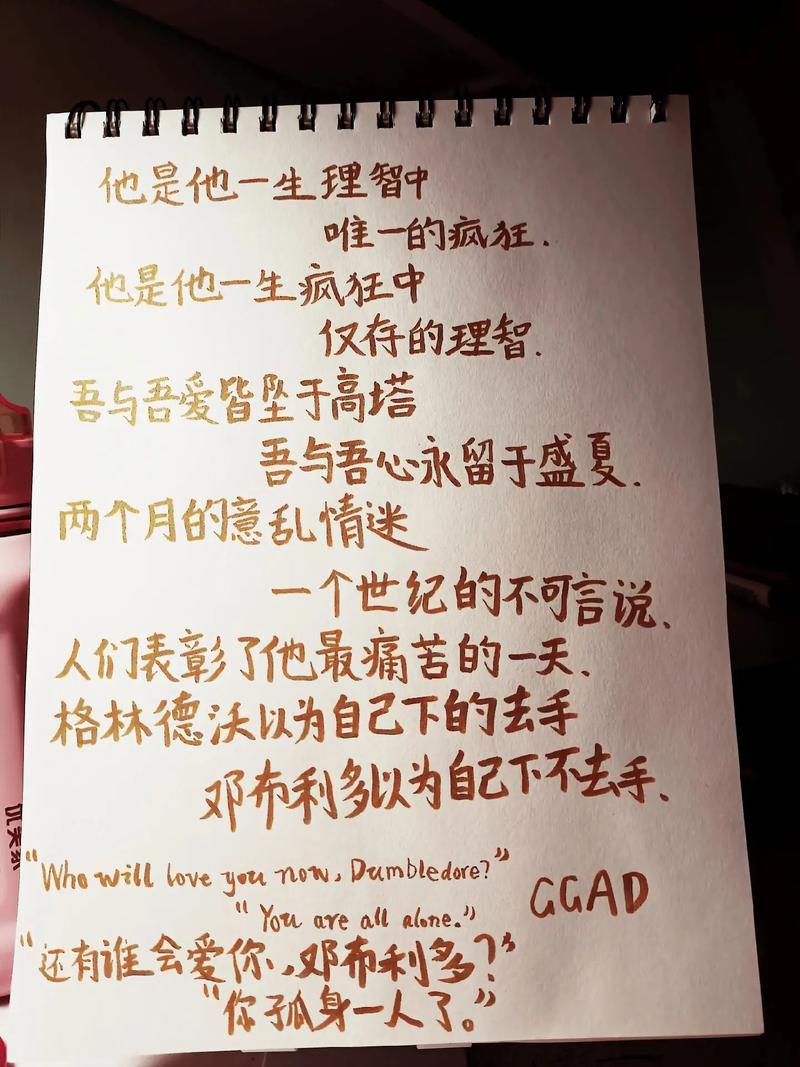 他是他一生理智中
唯一的疯狂.
他是他一生疯狂中
仅存的理智.
吾与吾爱皆坠于高塔
吾与吾心永留于盛夏.
两个月的意乱情迷
一个世纪的不可言说.
人们表彰了他最痛苦的一天.
格林德沃以为自己下的去手
邓布利多以为自己下不去手.
“Who will love you now, Dumbledore?”
“You are all alone.”
GGAD
“还有谁会爱你,邓布利多?”
“你孤身一人了。”